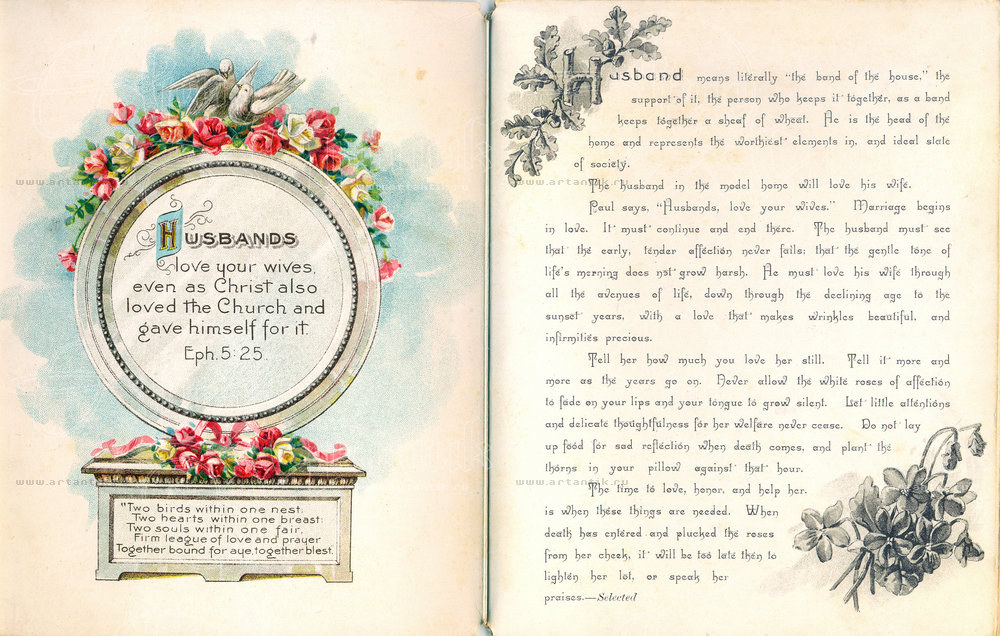 HUSBANDS
love your wives,
even as Christ also
loved the Church and
gave himself for it.
Eph. 5:25.
"Two birds within one nest:
Two hearts within one breast:
Two souls within one fair,
Firm league of love and prayer
Together bound for aye, together blest.
Husband means literally "the band of the house," the
support of it, the person who keeps it together, as a band
keeps together a sheaf of wheat. He is the head of the
home and represents the worthiest elements in, and ideal state
of society.
The husband in the model home will love his wife.
Paul says, "Husbands, love your wives." Marriage begins
in love. It must continue and end there. The husband must see
that the early, tender affection never fails: that the gentle tone of
life's morning does not grow harsh. He must love his wife through
all the avenues of life, down through the declining age to the
sunset years, with a love that makes wrinkles beautiful, and
infirmities precious.
Tell her how much you love her still. Tell it more and
more as the years go on. Never allow the white roses of affection
to fade on your lips and your tongue to grow silent. Let little attentions
and delicate thoughtfulness for her welfare never cease. Do not lay
up food for sad reflection when death comes, and plant the
thorns in your pillow against that hour.
The time to love, honor, and help her,
is when these things are needed. When
death has entered and plucked the roses
from her cheek, it will be too late then to
lighten her lot, or speak her
praises.—Selected
www.artantik.ru